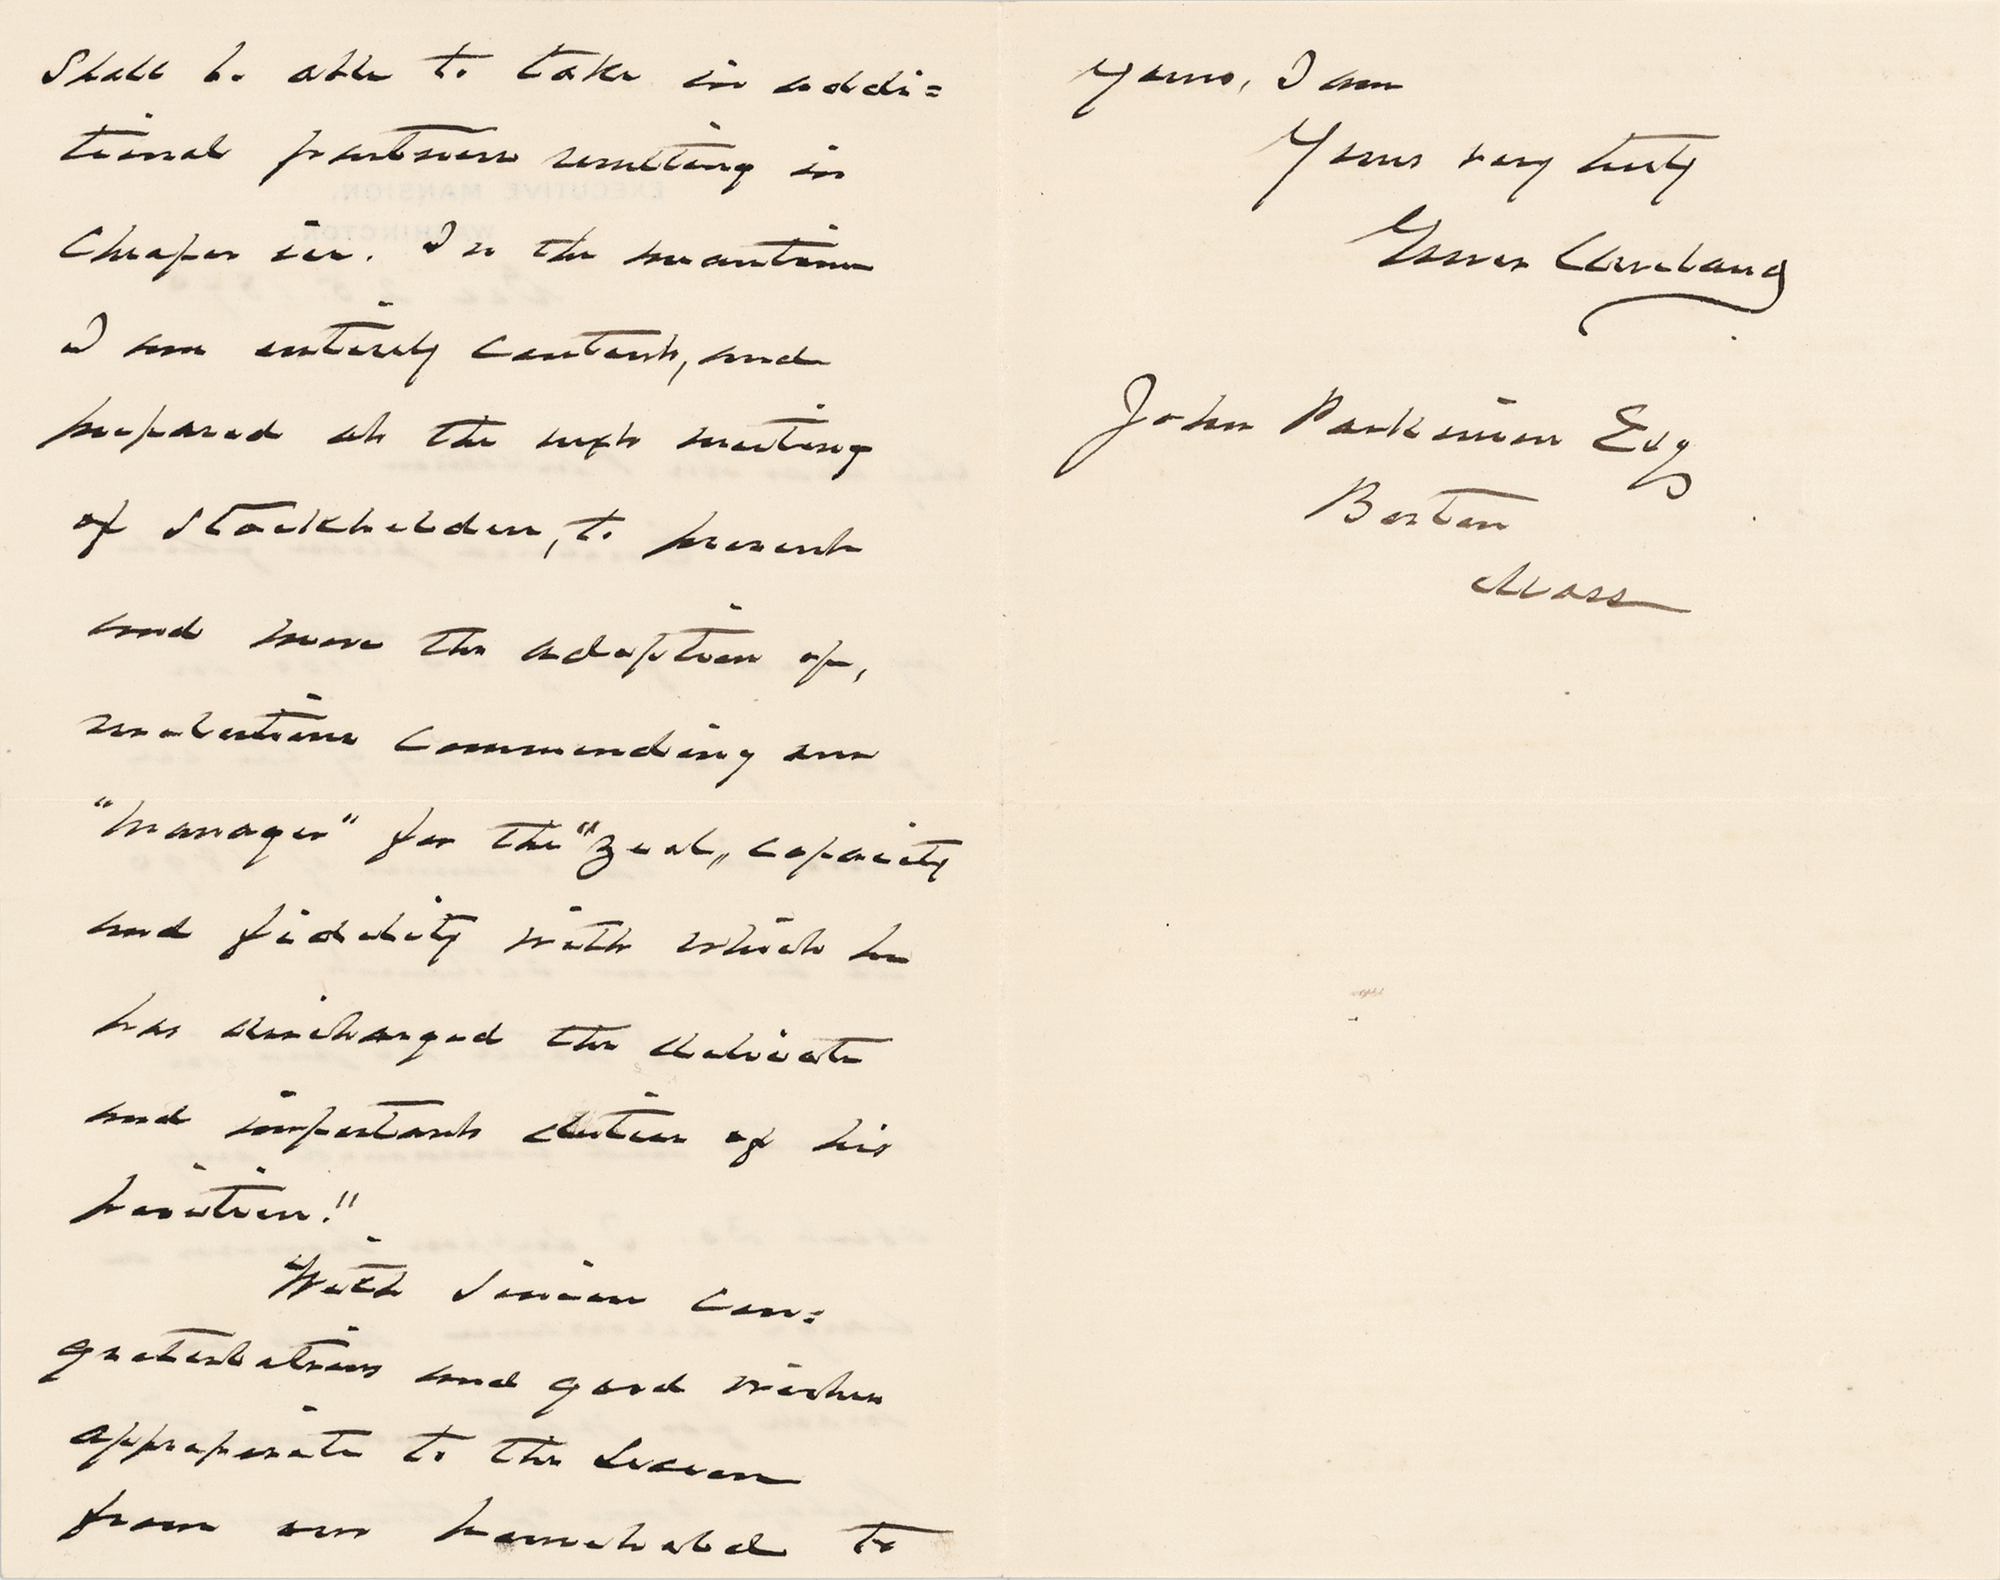 Shall be able to take in addi=
tional partners resulting in
Cheaper ice. In the meantime
I am entirely content, and
prepared at the next meeting
of Stockholders, to present
and move the adoption of,
resolutions commending our
"manager" for the "zeal, capacity
and fidelity with which he
has discharged the delicate
and important duties of his
position."
With Sincere con=
gratulations and good wishes
appropriate to the Season
from our household to
yours, I am
Yours very truly
Grover Cleveland
John Parkinson Esq
Boston
Mass
EXECUTIVE MANSION,
WASHINGTON.